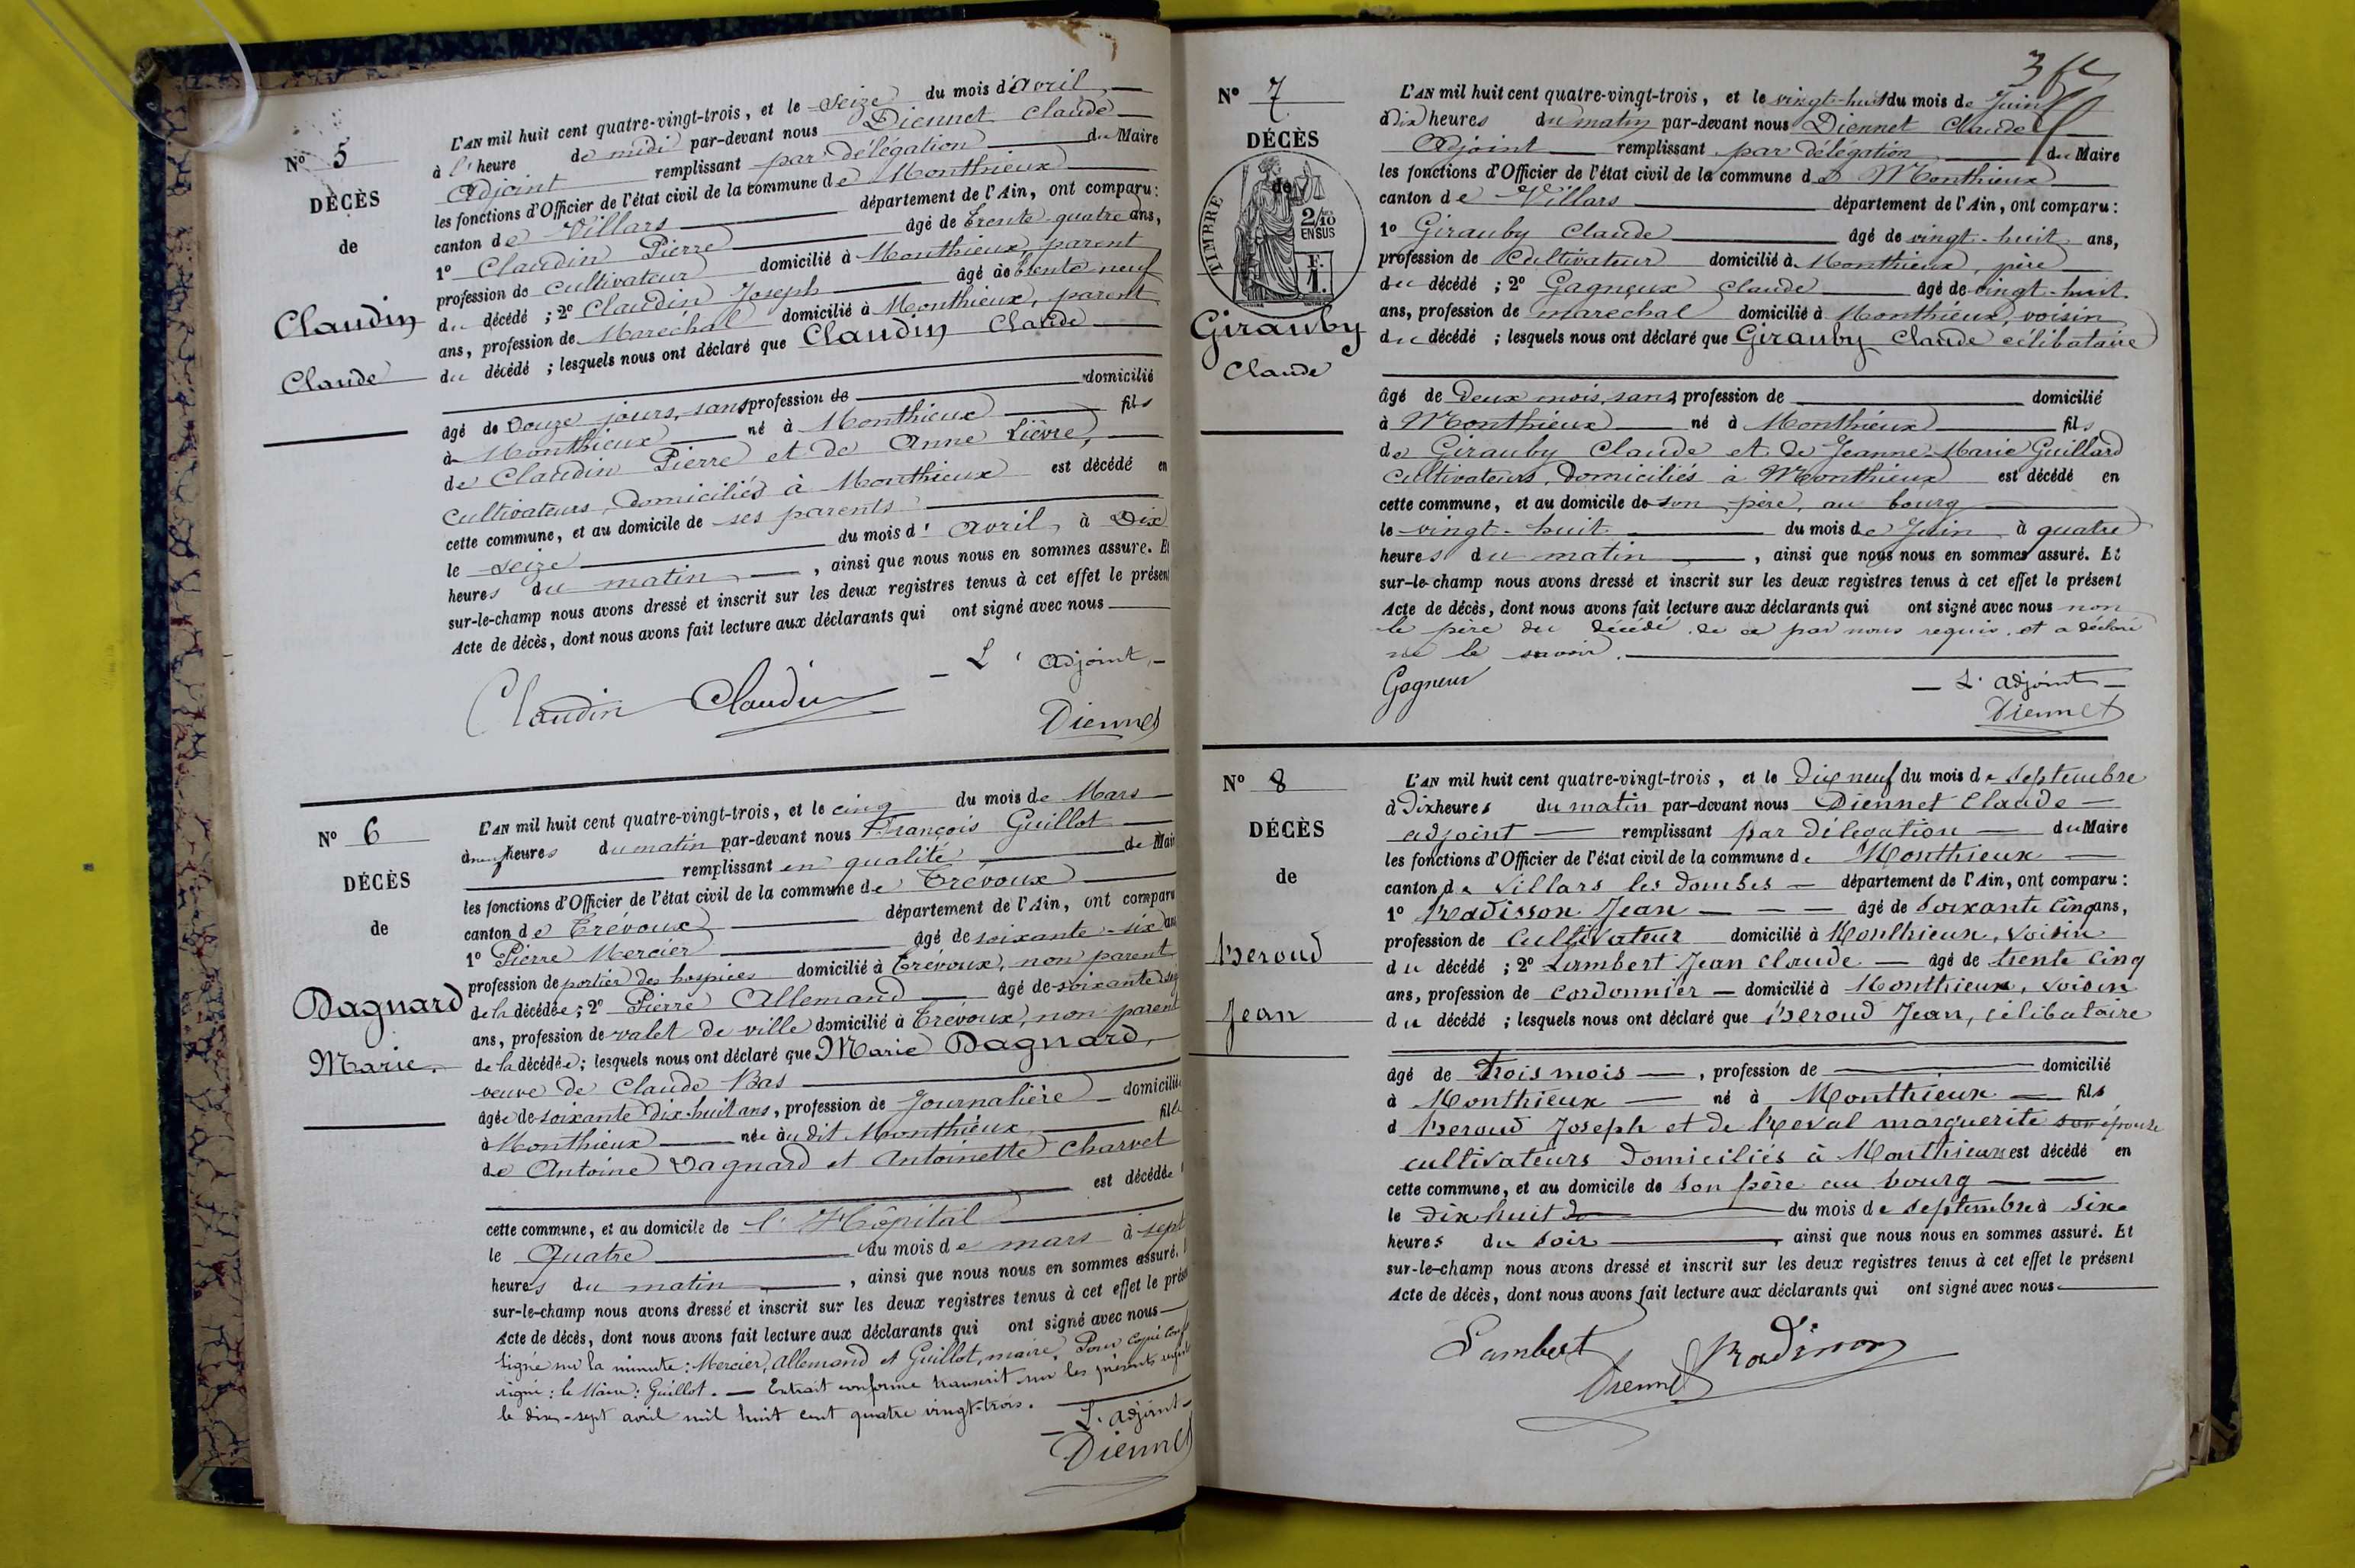 N° 5
DÉCÈS
de
Claudin
Claude
L'AN mil huit cent quatre-vingt-trois, et le seize du mois d'avril
à l'heure de midi par-devant nous Diennet Claude
Adjoint remplissant par délégation du Maire
les fonctions d'Officier de l'état civil de la commune de Monthieux
canton de Villars département de l'Ain, ont comparu:
1° Claudin Pierre âgé de trente quatre ans,
profession de cultivateur domicilié à Monthieux, parent
du décédé ; 2° Claudin Joseph âgé de trente neuf
ans, profession de Maréchal domicilié à Monthieux, parent
du décédé ; lesquels nous ont déclaré que Claudin Claude
âgé de Douze jours, sans profession de domicilié
à Monthieux né à Monthieux fils
de Claudin Pierre et de Anne Lièvre,
cultivateurs, domiciliés à Monthieux est décédé en
cette commune, et au domicile de ses parents
le seize du mois d'avril à Dix
heures du matin, ainsi que nous nous en sommes assuré. Et
sur-le-champ nous avons dressé et inscrit sur les deux registres tenus à cet effet le présent
Acte de décès, dont nous avons fait lecture aux déclarants qui ont signé avec nous
L'adjoint
Claudin Claudin
Diennet
N° 6
DÉCÈS
de
Dagnard
Marie.
L'AN mil huit cent quatre-vingt-trois, et le cinq du mois de Mars
à neuf heures du matin par-devant nous François Guillot
remplissant en qualité de Mai
les fonctions d'Officier de l'état civil de la commune de Trévoux
canton de Trévoux département de l'Ain, ont comparu
1° Pierre Mercier âgé de soixante-six ans
profession de portier des hospices domicilié à Trévoux, non parent
de la décédée; 2° Pierre Allemand âgé de soixante
ans, profession de valet de ville domicilié à Trévoux, non parent
de la décédée; lesquels nous ont déclaré que Marie Dagnard,
veuve de Claude Bas
âgée de soixante dix-huit ans, profession de Journalière domiciliée
à Monthieux née audit Monthieux fille
de Antoine Dagnard et Antoinette Charvet
est décédée
cette commune, et au domicile de l'Hôpital
le Quatre du mois de mars à sept
heures du matin, ainsi que nous nous en sommes assuré.
sur-le-champ nous avons dressé et inscrit sur les deux registres tenus à cet effet le prése
Acte de décès, dont nous avons fait lecture aux déclarants qui ont signé avec nous
Signé sur la minute: Mercier, Allemand et Guillot, maire. Pour copie conf
signé: le Maire: Guillot. — Extrait conforme transcrit sur les présents
le dix-sept avril mil huit cent quatre vingt-trois.
L'adjoint
Diennet
3
N° 7
DÉCÈS
de
TIMBRE
2/10 EN SUS
F. 1.
Girauby
Claude
L'AN mil huit cent quatre-vingt-trois, et le vingt-huit du mois de Juin
à Dix heures du matin par-devant nous Diennet Claude
Adjoint remplissant par délégation du Maire
les fonctions d'Officier de l'état civil de la commune de Monthieux
canton de Villars département de l'Ain, ont comparu:
1° Girauby Claude âgé de vingt-huit ans,
profession de Cultivateur domicilié à Monthieux, père
du décédé ; 2° Gagneux Claude âgé de vingt-huit
ans, profession de maréchal domicilié à Monthieux, voisin
du décédé ; lesquels nous ont déclaré que Girauby Claude célibataire
âgé de Deux mois, sans profession de domicilié
à Monthieux né à Monthieux fils
de Girauby Claude et de Jeanne-Marie Guillard
cultivateurs, domiciliés à Monthieux est décédé en
cette commune, et au domicile de son père, au bourg
le vingt-huit du mois de Juin à quatre
heures du matin, ainsi que nous nous en sommes assuré. Et
sur-le-champ nous avons dressé et inscrit sur les deux registres tenus à cet effet le présent
Acte de décès, dont nous avons fait lecture aux déclarants qui ont signé avec nous non
le père du décédé de ce par nous requis, et a déclaré
ne le savoir.
Gagneux L'adjoint
Diennet
N° 8
DÉCÈS
de
Beroud
Jean
L'AN mil huit cent quatre-vingt-trois, et le Dix neuf du mois de Septembre
à Dix heures du matin par-devant nous Diennet Claude
adjoint remplissant par délégation du Maire
les fonctions d'Officier de l'état civil de la commune de Monthieux
canton de Villars les dombes département de l'Ain, ont comparu:
1° Radisson Jean âgé de Soixante cinq ans,
profession de Cultivateur domicilié à Monthieux, voisin
du décédé ; 2° Lambert Jean Claude âgé de trente cinq
ans, profession de Cordonnier domicilié à Monthieux, voisin
du décédé ; lesquels nous ont déclaré que Beroud Jean, célibataire
âgé de trois mois, profession de domicilié
à Monthieux né à Monthieux fils
d Beroud Joseph et de Reval marguerite son épouse
cultivateurs domiciliés à Monthieux est décédé en
cette commune, et au domicile de Son père au bourg
le Dix huit du mois de septembre à Six
heures du soir, ainsi que nous nous en sommes assuré. Et
sur-le-champ nous avons dressé et inscrit sur les deux registres tenus à cet effet le présent
Acte de décès, dont nous avons fait lecture aux déclarants qui ont signé avec nous
Lambert Radisson
Diennet